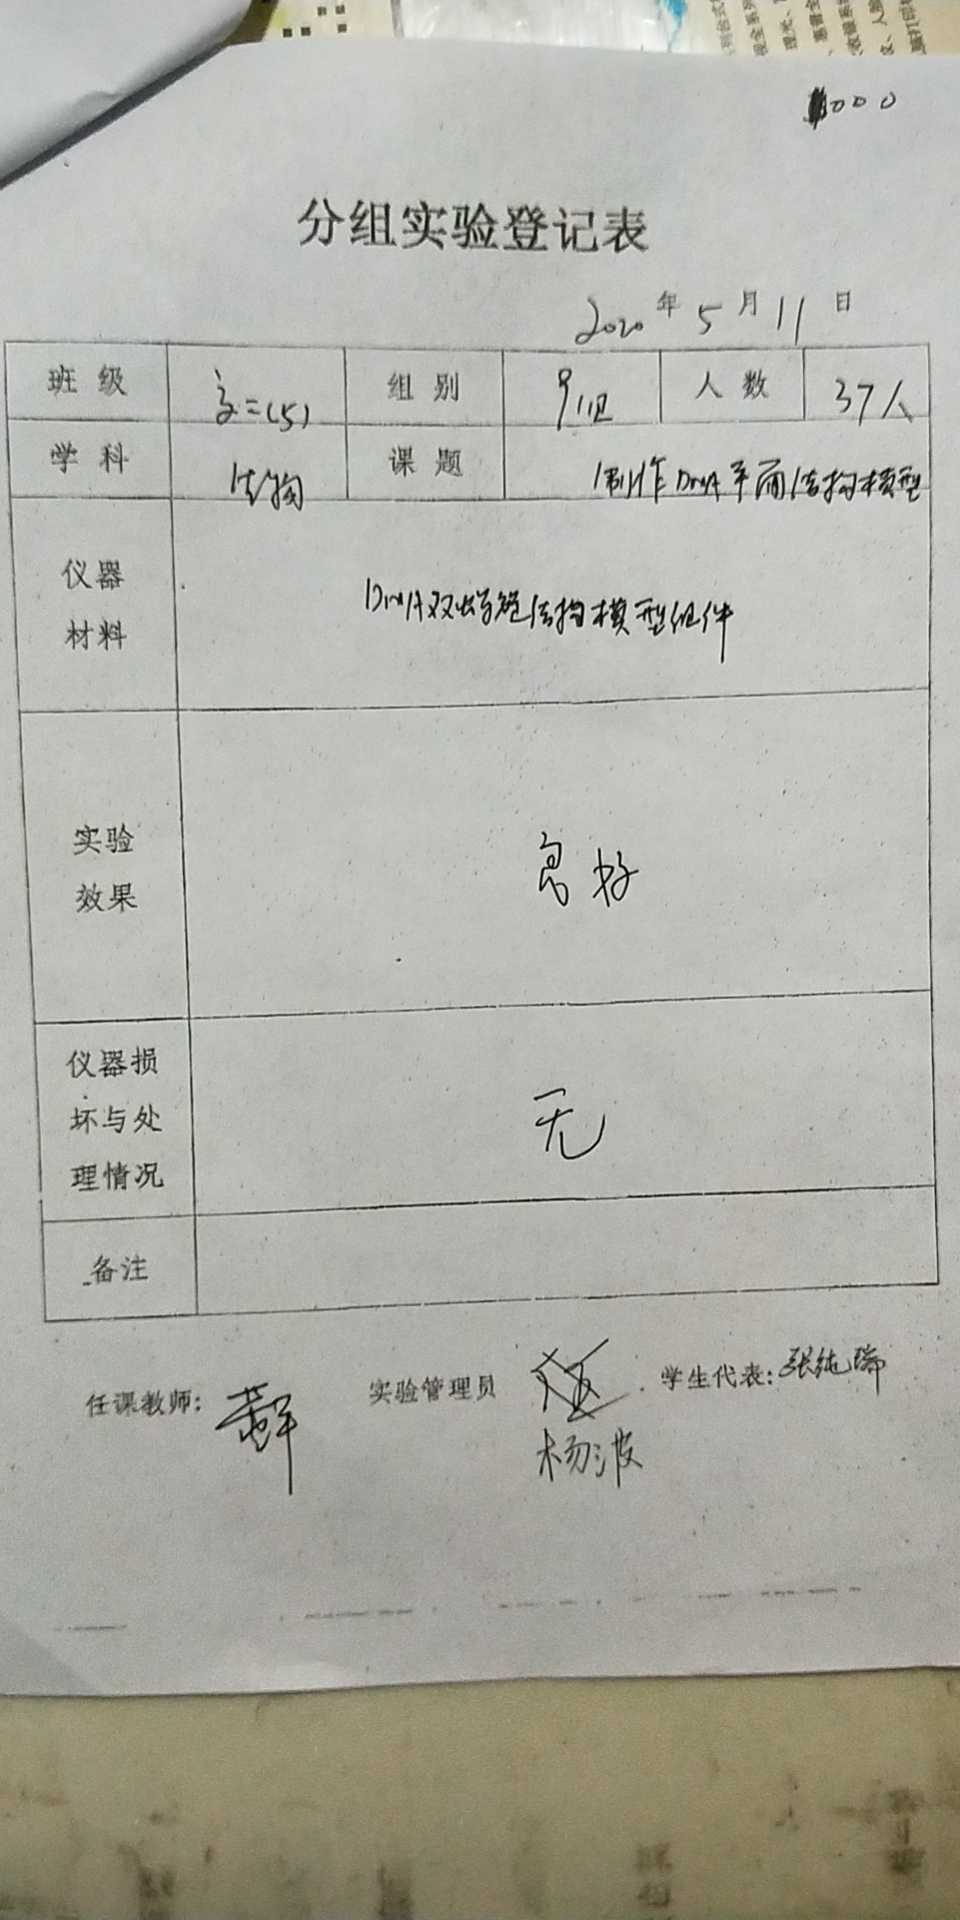 000
分组实验登记表
2020年5月11日
班级 高二(5) 组别 9组 人数 37人
学科 生物 课题 制作DNA平面结构模型
仪器 DNA双螺旋结构模型组件
材料
实验 良好
效果
仪器损 无
坏与处
理情况
备注
任课教师: 实验管理员 学生代表: 张纯瑞
杨波